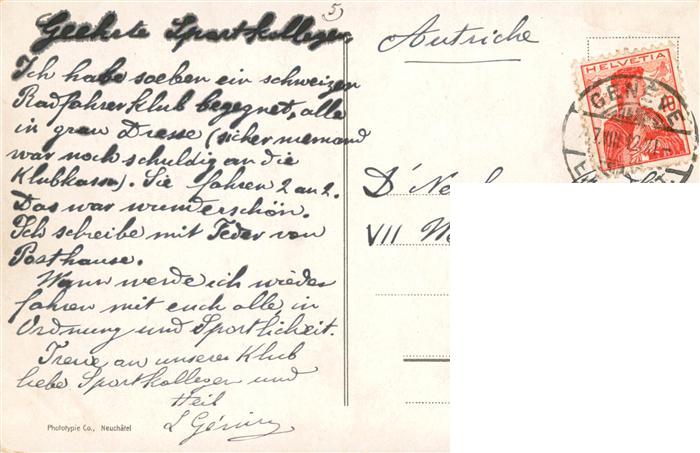 5)
Geehrte Sportkollegen,
Ich habe soeben ein schweizer
Radfahrer Klub begegnet, alle
in grau Dresse (sicher niemand
war noch schuldig an die
Klubkassa). Sie fahren 2 an 2.
Das war wunderschön.
Ich schreibe mit Feder von
Posthause.
Wann werde ich wieder
fahren mit euch alle, in
Ordnung und Sportlicheit.
Treue an unserer Klub
liebe Sportkollegen und
Heil
L
Phototypie Co., Neuchâtel
Autriche
HELVETIA
10
GENÈVE
Dr
VII